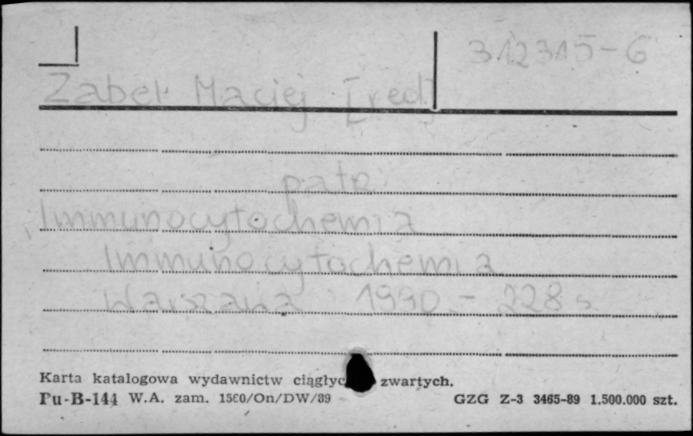 312315-G
Zabel Maciej [red]
patr
Immunocytochemia
Immunocytochemia
Warszawa 1990 - 228 s
Karta katalogowa wydawnictw ciągłyc zwartych.
Pu-B-144 W.A. zam. 1560/On/DW/89 GZG Z-3 3465-89 1.500.000 szt.